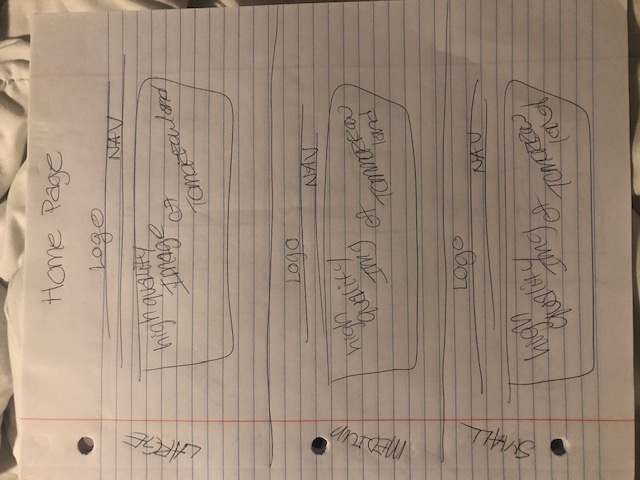 Home Page
LARGE
Logo
NAV
high quality
Image of
TOMORROWland
MEDIUM
Logo
NAV
high
quality
Img of TOMMORROW
land
SMALL
Logo
NAV
high
quality
Img of TOMORROW
land